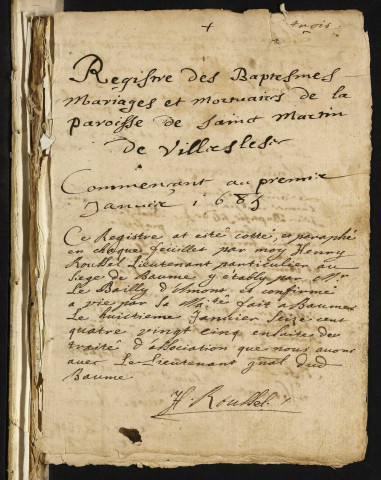 + trois
Registre des Baptesmes
Mariages et mortuaires de la
paroisse de sainct Martin
de
Commencant au premier
Janvier 1685
Ce Registre at esté cotté, et paraphé
en chaque feuillet par moy Henry
Roussel Lieutenant particulier au
siege de Baume y etably par
Le Bailly d'Amont et confirmé
a vie par sa Ma.té fait a Baume
Le huictieme Janvier seize cent
quatre vingt cinq ensuitte du
traité d'association que nous avons
avec Le Lieutenant gnal dud
Baume
H. Roussel